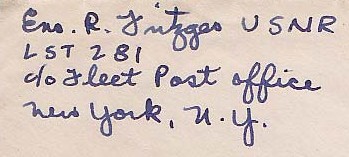 Ens. R. Fritzges USNR
LST 281
c/o Fleet Post office
New York, N.Y.